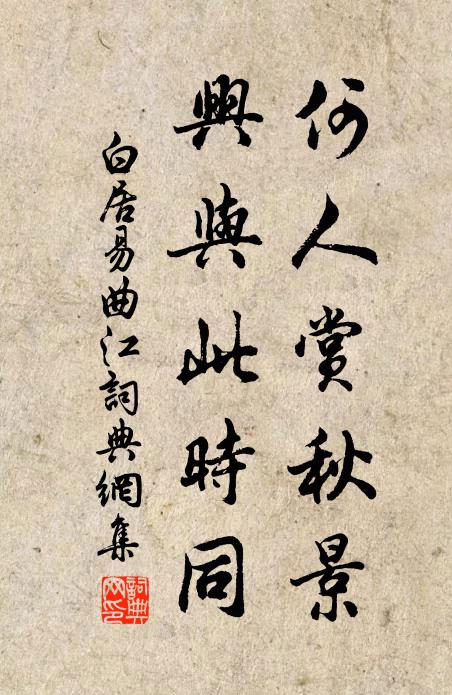 何人賞秋景
興與此時同
白居易曲江詞典網集
詞典网印